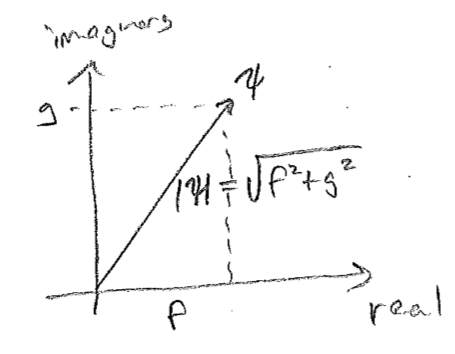 imaginary
ψ
g
|ψ| = √f²+g²
f
real